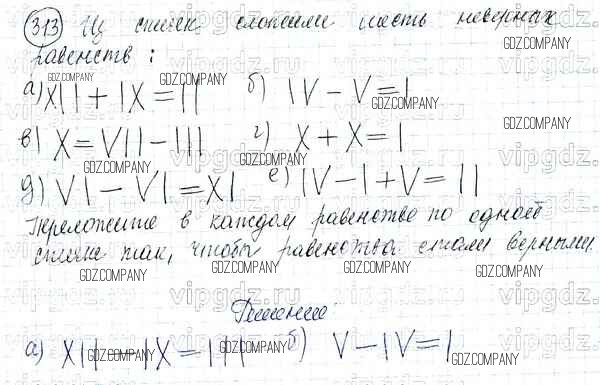 313 Из спичек сложили шесть неверных
равенств :
а) XII + IX = II   б) IV - V = I
в) X = VII - III   г) X + X = I
д) VI - VI = XI   е) IV - I + V = II
Переложите в каждом равенстве по одной
спичке так, чтобы равенства стали верными.
Решение
а) XII - IX = III   б) V - IV = I
GDZ.COMPANY
vipgdz.ru